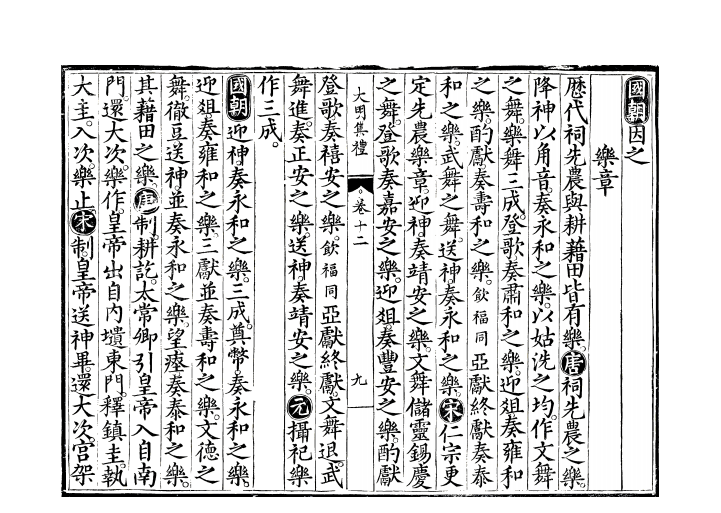 國朝因之
樂章
歷代祠先農與耕藉田皆有樂。唐祠先農之樂。
降神以角音。奏永和之樂。以姑洗之均。作文舞
之舞。樂舞三成。登歌奏肅和之樂。迎俎奏雍和
之樂。酌獻奏壽和之樂。飲福同亞獻終獻奏泰
和之樂。武舞之舞。送神奏永和之樂。宋仁宗更
定先農樂章。迎神奏靖安之樂。文舞儲靈錫慶
之舞。登歌奏嘉安之樂。迎俎奏豐安之樂。酌獻
大明集禮 卷十二 九
登歌奏禧安之樂。飲福同亞獻終獻。文舞退。武
舞進。奏正安之樂。送神奏靖安之樂。元攝祀樂
作三成。
國朝迎神奏永和之樂。三成。奠幣奏永和之樂。
迎俎奏雍和之樂。三獻並奏壽和之樂。文德之
舞。徹豆送神並奏永和之樂。望瘞奏泰和之樂。
其藉田之樂。唐制耕訖。太常卿引皇帝入自南
門。還大次。樂作。皇帝出自內壝東門。釋鎮圭。執
大圭。入次。樂止。宋制皇帝送神畢。還大次。宮架